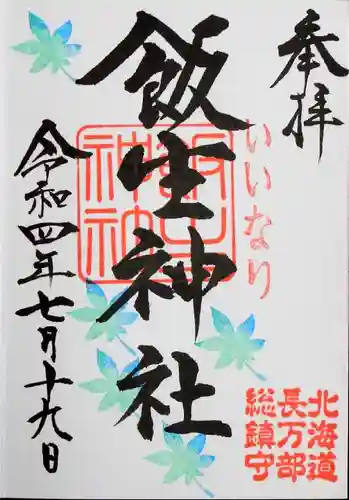 奉拝
いいなり
北海道
長万部
総鎮守
飯生神社
飯生神社
令和四年七月十九日